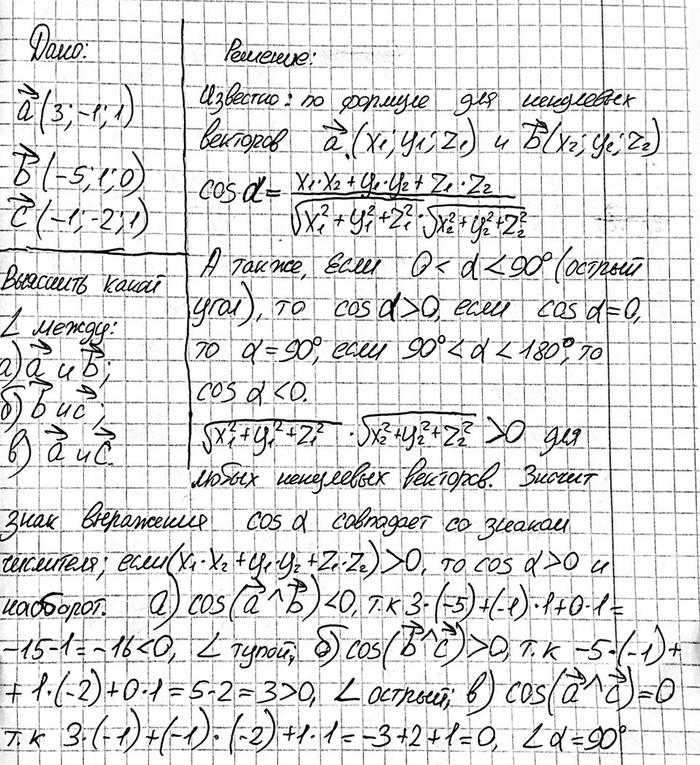 Дано:
a⃗(3;-1;1)
b⃗(-5;1;0)
c⃗(-1;-2;1)
Выяснить какой
∠ между:
а) a⃗ и b⃗;
б) b⃗ и c⃗;
в) a⃗ и c⃗.
Решение:
Известно: по формуле для ненулевых
векторов a⃗(x₁;y₁;z₁) и b⃗(x₂;y₂;z₂)
cos α = (x₁·x₂+y₁·y₂+z₁·z₂)/(√(x₁²+y₁²+z₁²)·√(x₂²+y₂²+z₂²))
А также, если 0<α<90° (острый
угол), то cos α>0, если cos α=0,
то α=90°, если 90°<α<180°, то
cos α<0.
√(x₁²+y₁²+z₁²)·√(x₂²+y₂²+z₂²)>0 для
любых ненулевых векторов. Значит
знак выражения cos α совпадает со знаком
числителя; если (x₁·x₂+y₁·y₂+z₁·z₂)>0, то cos α>0 и
наоборот. а) cos(a⃗^b⃗)<0, т.к 3·(-5)+(-1)·1+0·1=
-15-1=-16<0, ∠ тупой; б) cos(b⃗^c⃗)>0, т.к -5·(-1)+
+1·(-2)+0·1=5-2=3>0, ∠ острый; в) cos(a⃗^c⃗)=0
т.к 3·(-1)+(-1)·(-2)+1·1=-3+2+1=0, ∠α=90°